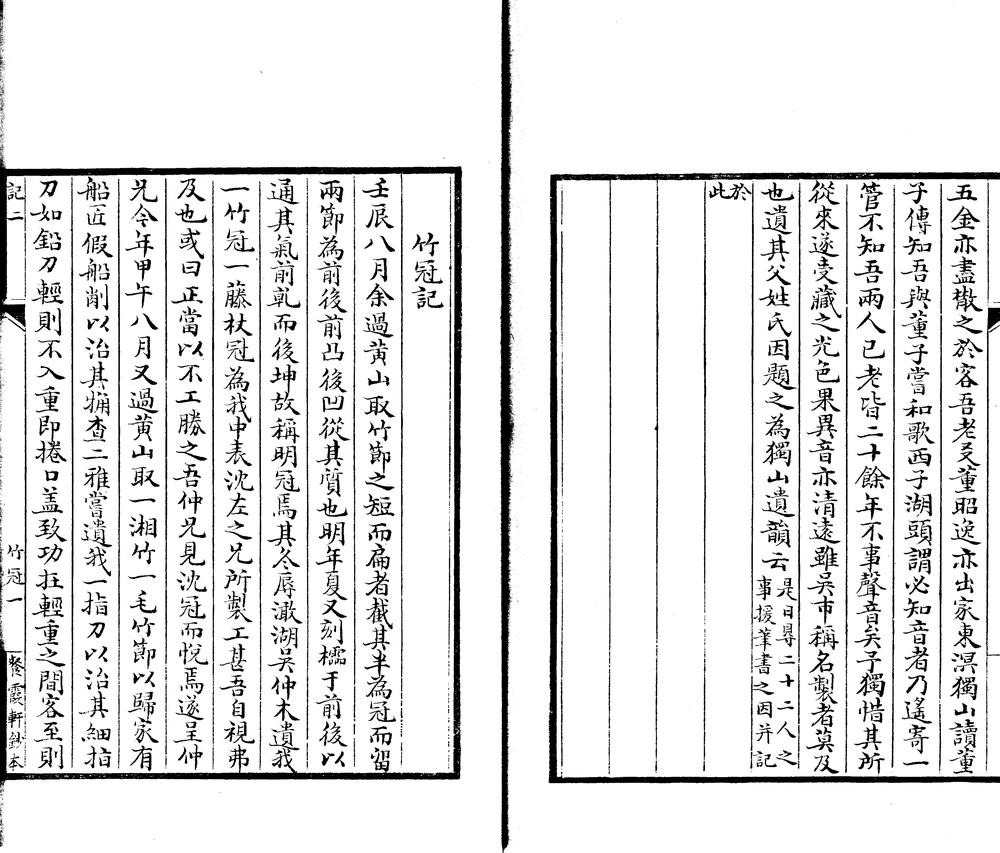 五金亦盡檄之於客吾老友董昭逸亦出家東溟獨山讀董
子傳知吾與董子嘗和歌西子湖頭謂必知音者乃遙寄一
管不知吾兩人已老皆二十餘年不事聲音矣予獨惜其所
從來遂受藏之光色果異音亦清遠雖吳市稱名製者莫及
也遺其父姓氏因題之為獨山遺韻云
是日尋二十二人之
事援筆書之因并記
於
此
竹冠記
壬辰八月余過黃山取竹節之短而扁者截其半為冠而留
兩節為前後前凸後凹從其質也明年夏又刻櫺于前後以
通其氣前乾而後坤故稱明冠焉其冬辱澉湖吳仲木遺我
一竹冠一藤杖冠為我中表沈左之兄所製工甚吾自視弗
及也或曰正當以不工勝之吾仲兄見沈冠而悅焉遂呈仲
兄今年甲午八月又過黃山取一湘竹一毛竹節以歸家有
船匠假船削以治其㭼查二雅嘗遺我一指刀以治其細指
刀如鉛刀輕則不入重即捲口蓋致功在輕重之間客至則
記二
竹冠一
餐霞軒鈔本